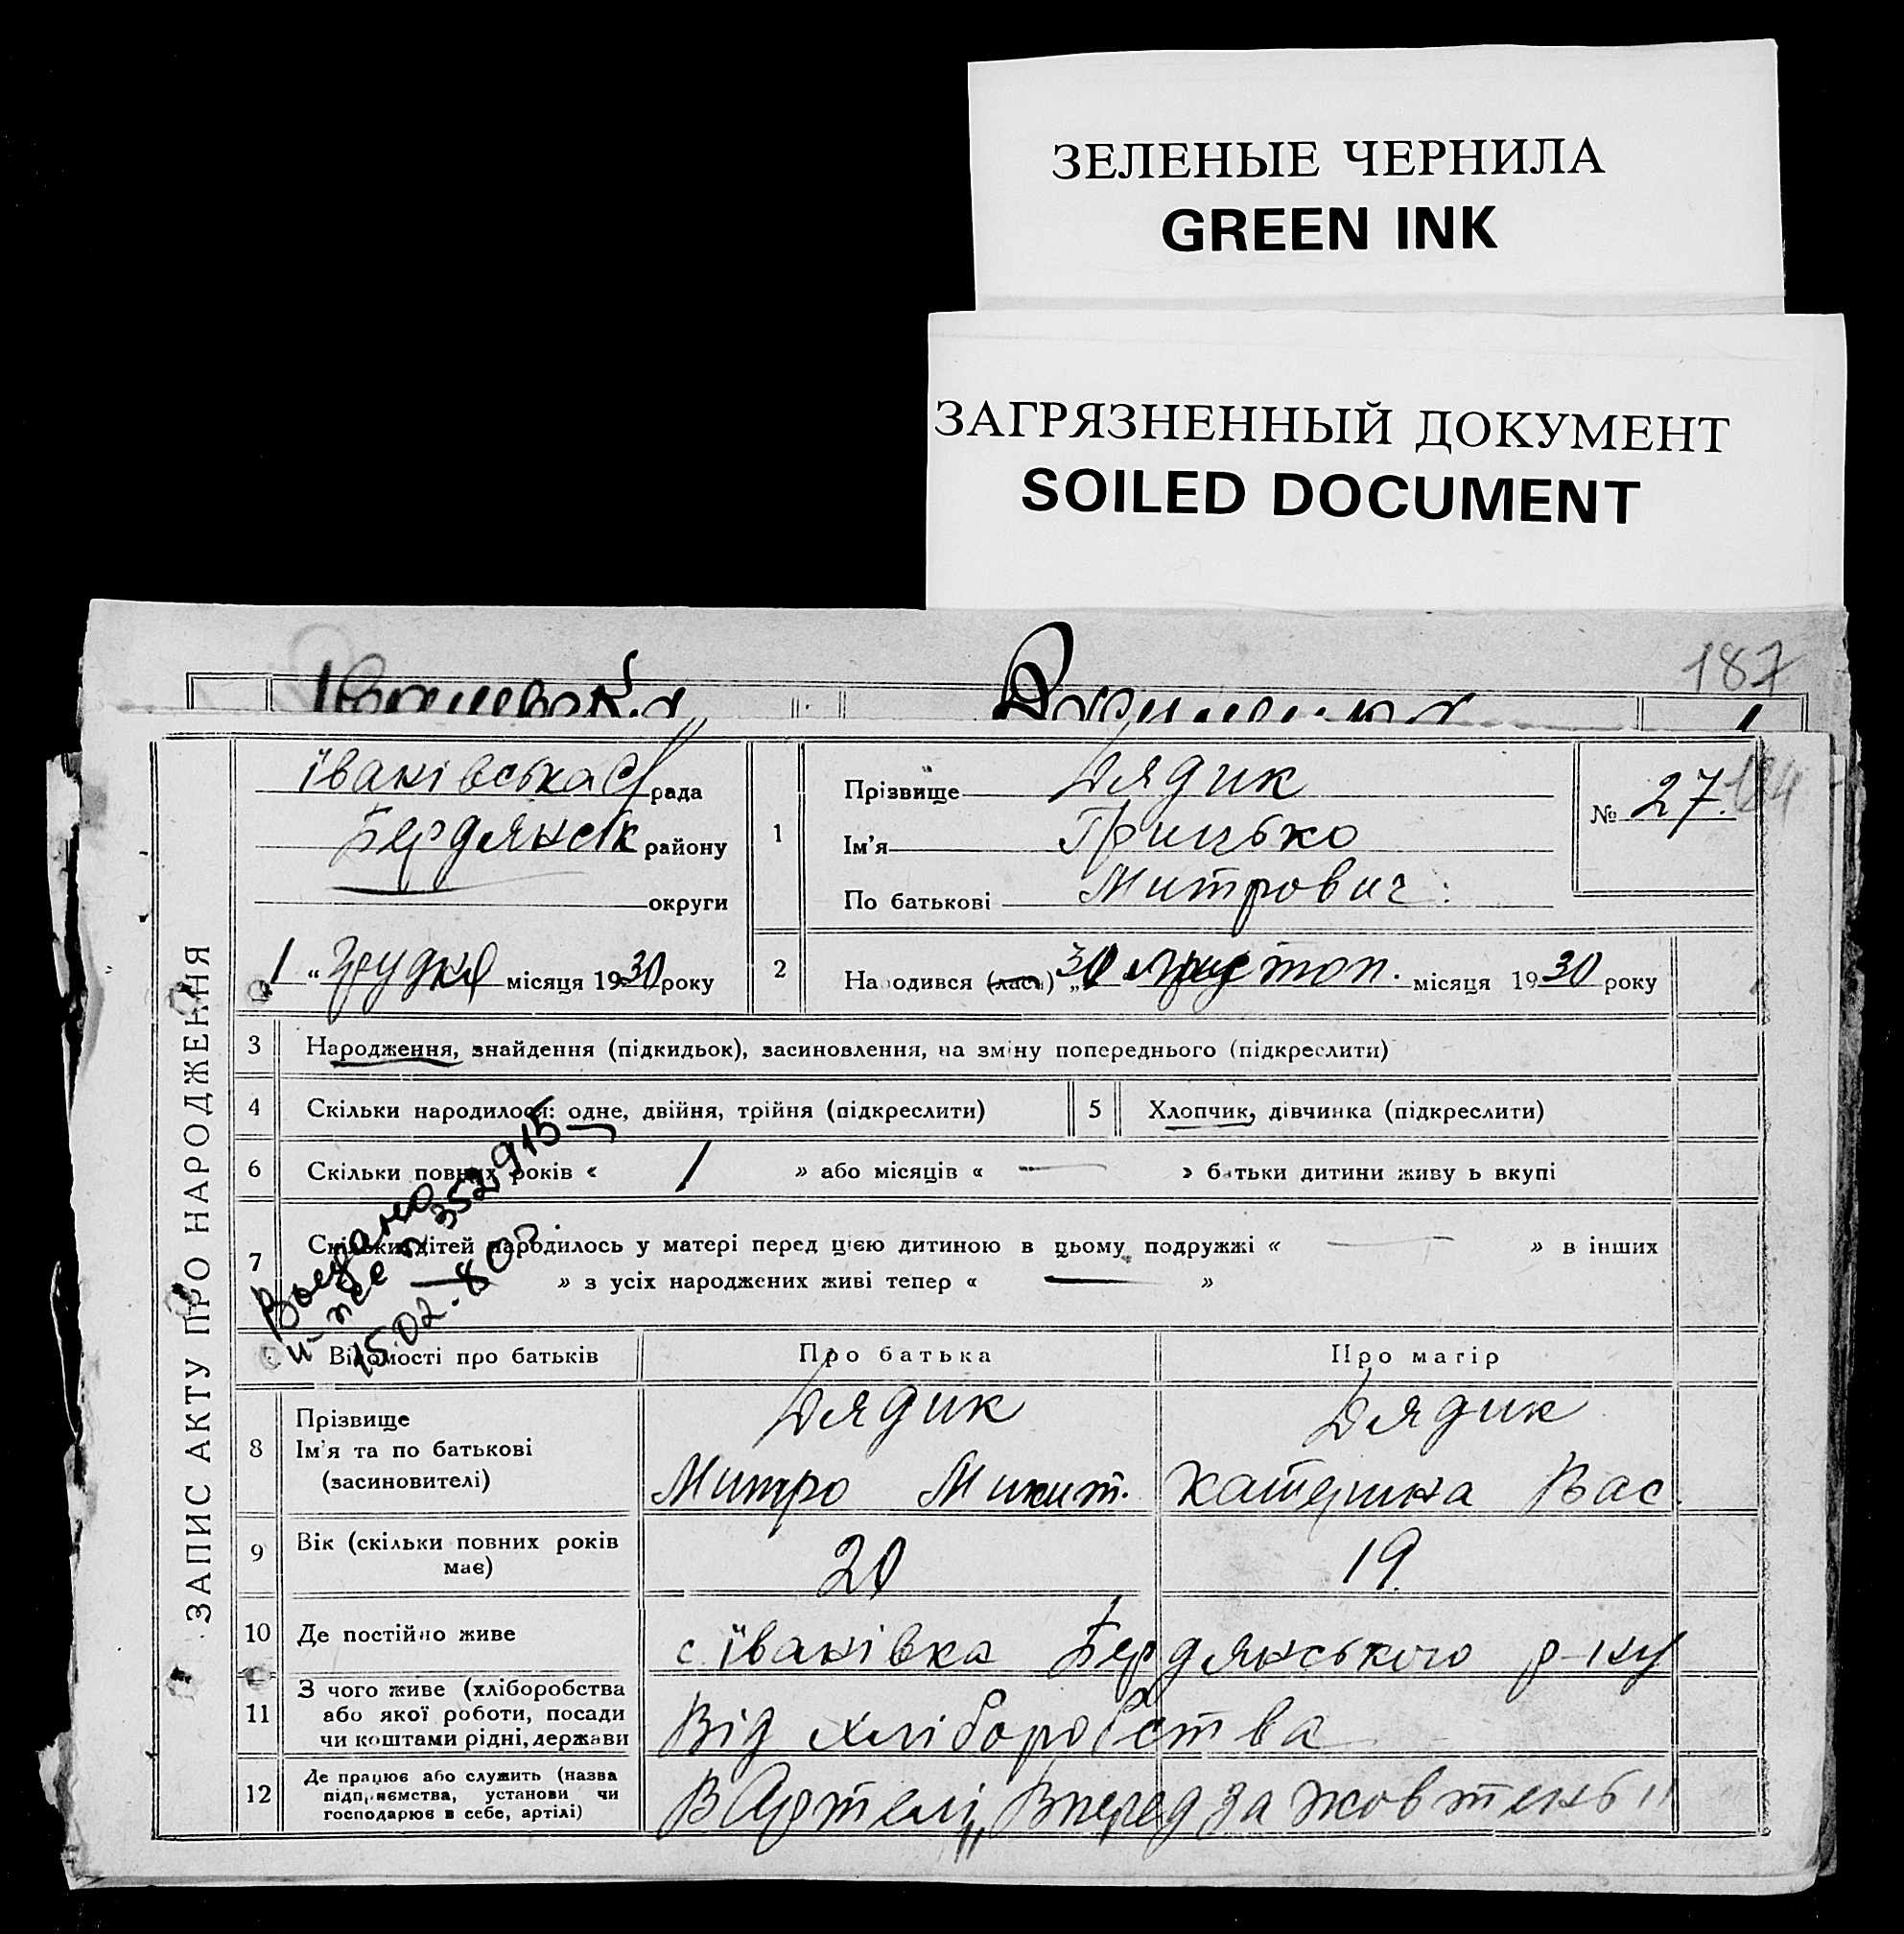 ЗЕЛЕНЫЕ ЧЕРНИЛА
GREEN INK
ЗАГРЯЗНЕННЫЙ ДОКУМЕНТ
SOILED DOCUMENT
187
ЗАПИС АКТУ ПРО НАРОДЖЕННЯ
Іванівська с/рада
Бердянськ району
округи
1 Прізвище Дядик
Ім'я Грицько
По батькові Митрович
№ 27
1 " Грудня місяця 1930 року
2 Народився (лась) „30 листоп. місяця 1930 року
3 Народження, знайдення (підкидьок), засиновлення, на зміну попереднього (підкреслити)
4 Скільки народилося: одне, двійня, трійня (підкреслити) 5 Хлопчик, дівчинка (підкреслити)
6 Скільки повних років « 1 » або місяців « — » батьки дитини живуть вкупі
7 Скільки дітей народилось у матері перед цією дитиною в цьому подружжі « — » в інших
— » з усіх народжених живі тепер « — »
15.02.80
Відомості про батьків Про батька Про матір
8 Прізвище
Ім'я та по батькові
(засиновителі)
Дядик
Митро Микит.
Дядик
Катерина Вас.
9 Вік (скільки повних років
має)
20 19.
10 Де постійно живе с. Іванівка Бердянського р-ну
11 З чого живе (хліборобства
або якої роботи, посади
чи коштами рідні, держави
Від хліборобства
12 Де працює або служить (назва
підприємства, установи чи
господарює в себе, артілі)
В Артелі „Вперед за жовтень"